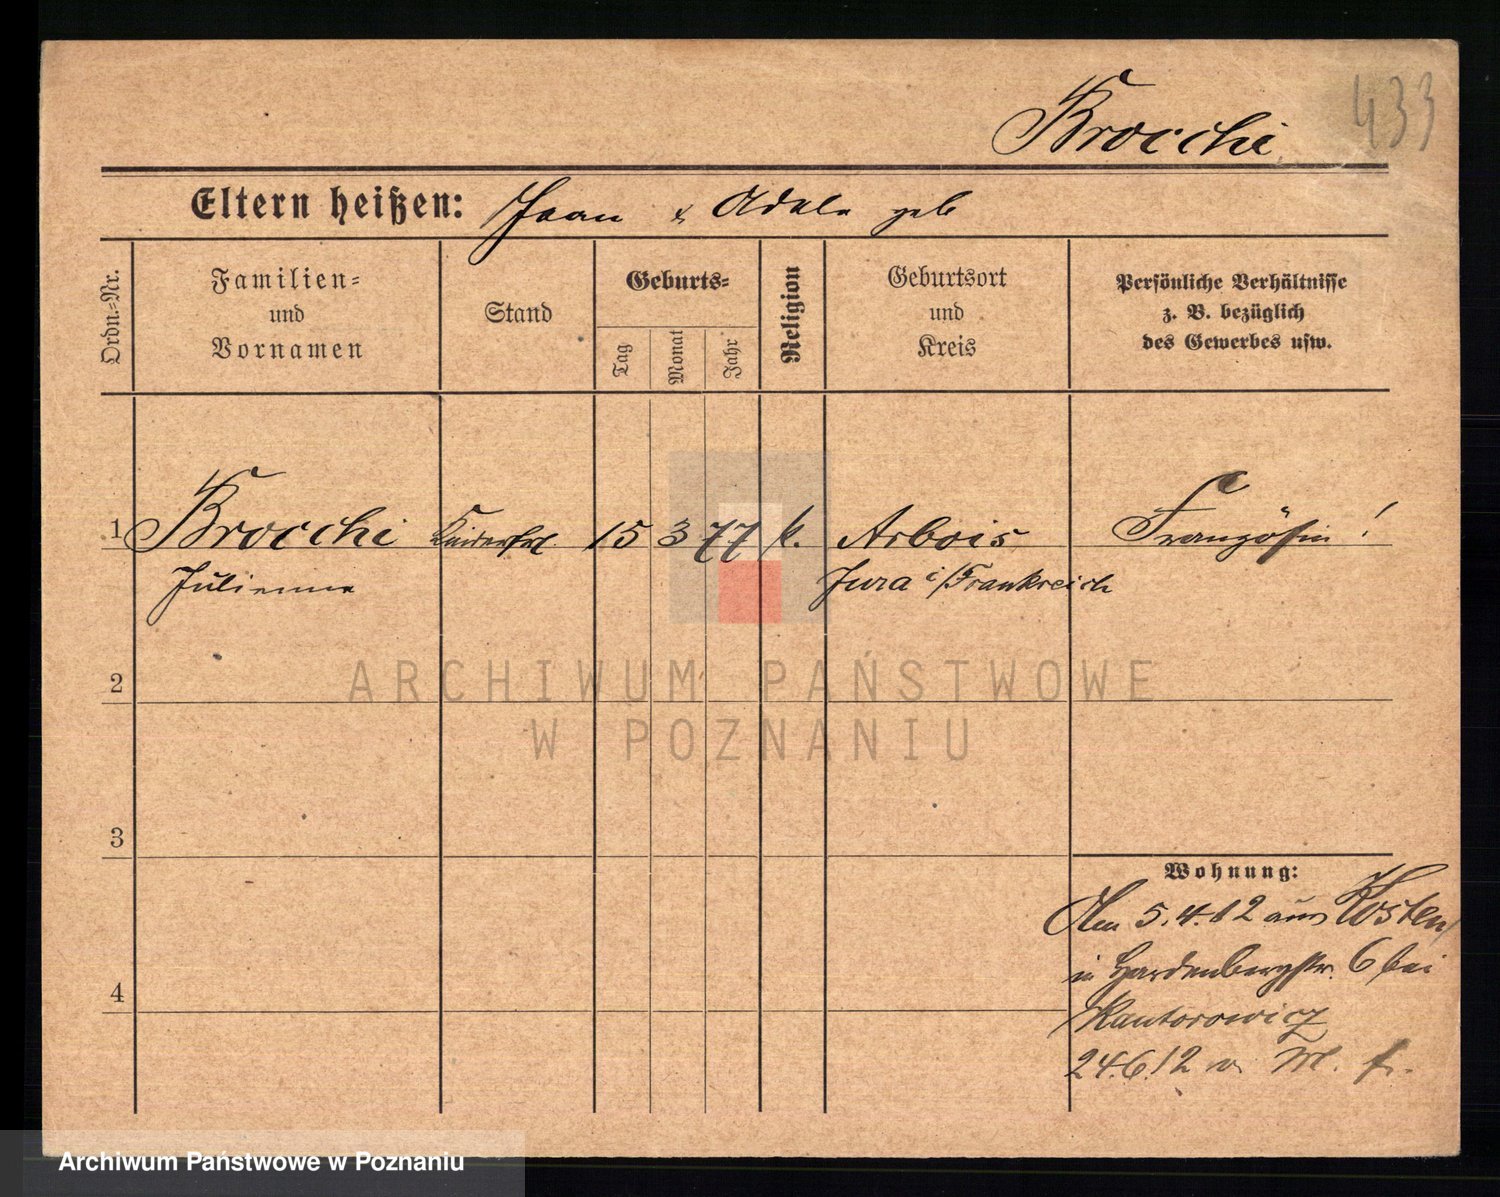 Brocchi
433
Eltern heißen: Jean & Adele geb
Ordn.=Nr.
Familien=
und
Vornamen
Stand
Geburts=
Tag
Monat
Jahr
Religion
Geburtsort
und
Kreis
Persönliche Verhältnisse
z. B. bezüglich
des Gewerbes usw.
1 Brocchi Kinderfrl. 15 3 77 k. Arbois Französin!
Julienne Jura i/Frankreich
2
ARCHIWUM PAŃSTWOWE
W POZNANIU
3
Wohnung:
Am 5.4.12 aus Kosten
in Hardenbergstr. 6 bei
4
Kantorowicz
24.6.12 v. M.
Archiwum Państwowe w Poznaniu